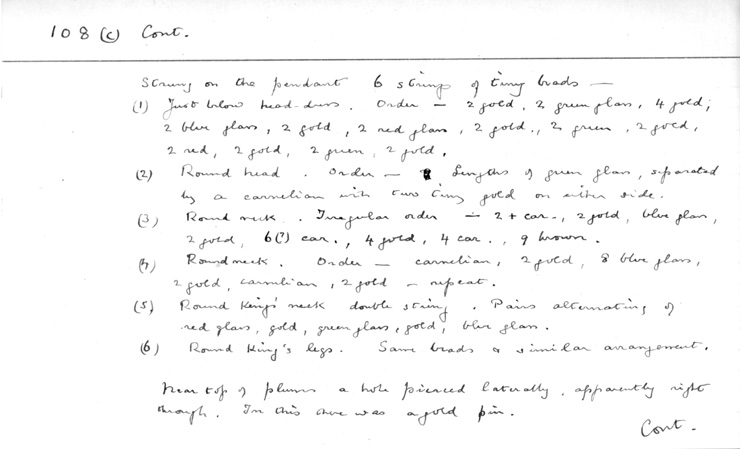 108 (c) Cont.
Strung on the pendant 6 strings of tiny beads —
(1) Just below head-dress. Order — 2 gold, 2 green glass, 4 gold,
2 blue glass, 2 gold, 2 red glass, 2 gold, 2 green, 2 gold,
2 red, 2 gold, 2 green, 2 gold.
(2) Round head. Order — Lengths of green glass, separated
by a carnelian with two tiny gold on either side.
(3) Round neck. Irregular order — 2 + car., 2 gold, blue glass,
2 gold, 6(?) car., 4 gold, 4 car., 9 brown.
(4) Round neck. Order — carnelian, 2 gold, 8 blue glass,
2 gold, carnelian, 2 gold — repeat.
(5) Round King's neck double string. Pairs alternating of
red glass, gold, green glass, gold, blue glass.
(6) Round King's legs. Same beads & similar arrangement.
Near top of plumes a hole pierced laterally, apparently right
through. In this there was a gold pin.
Cont.